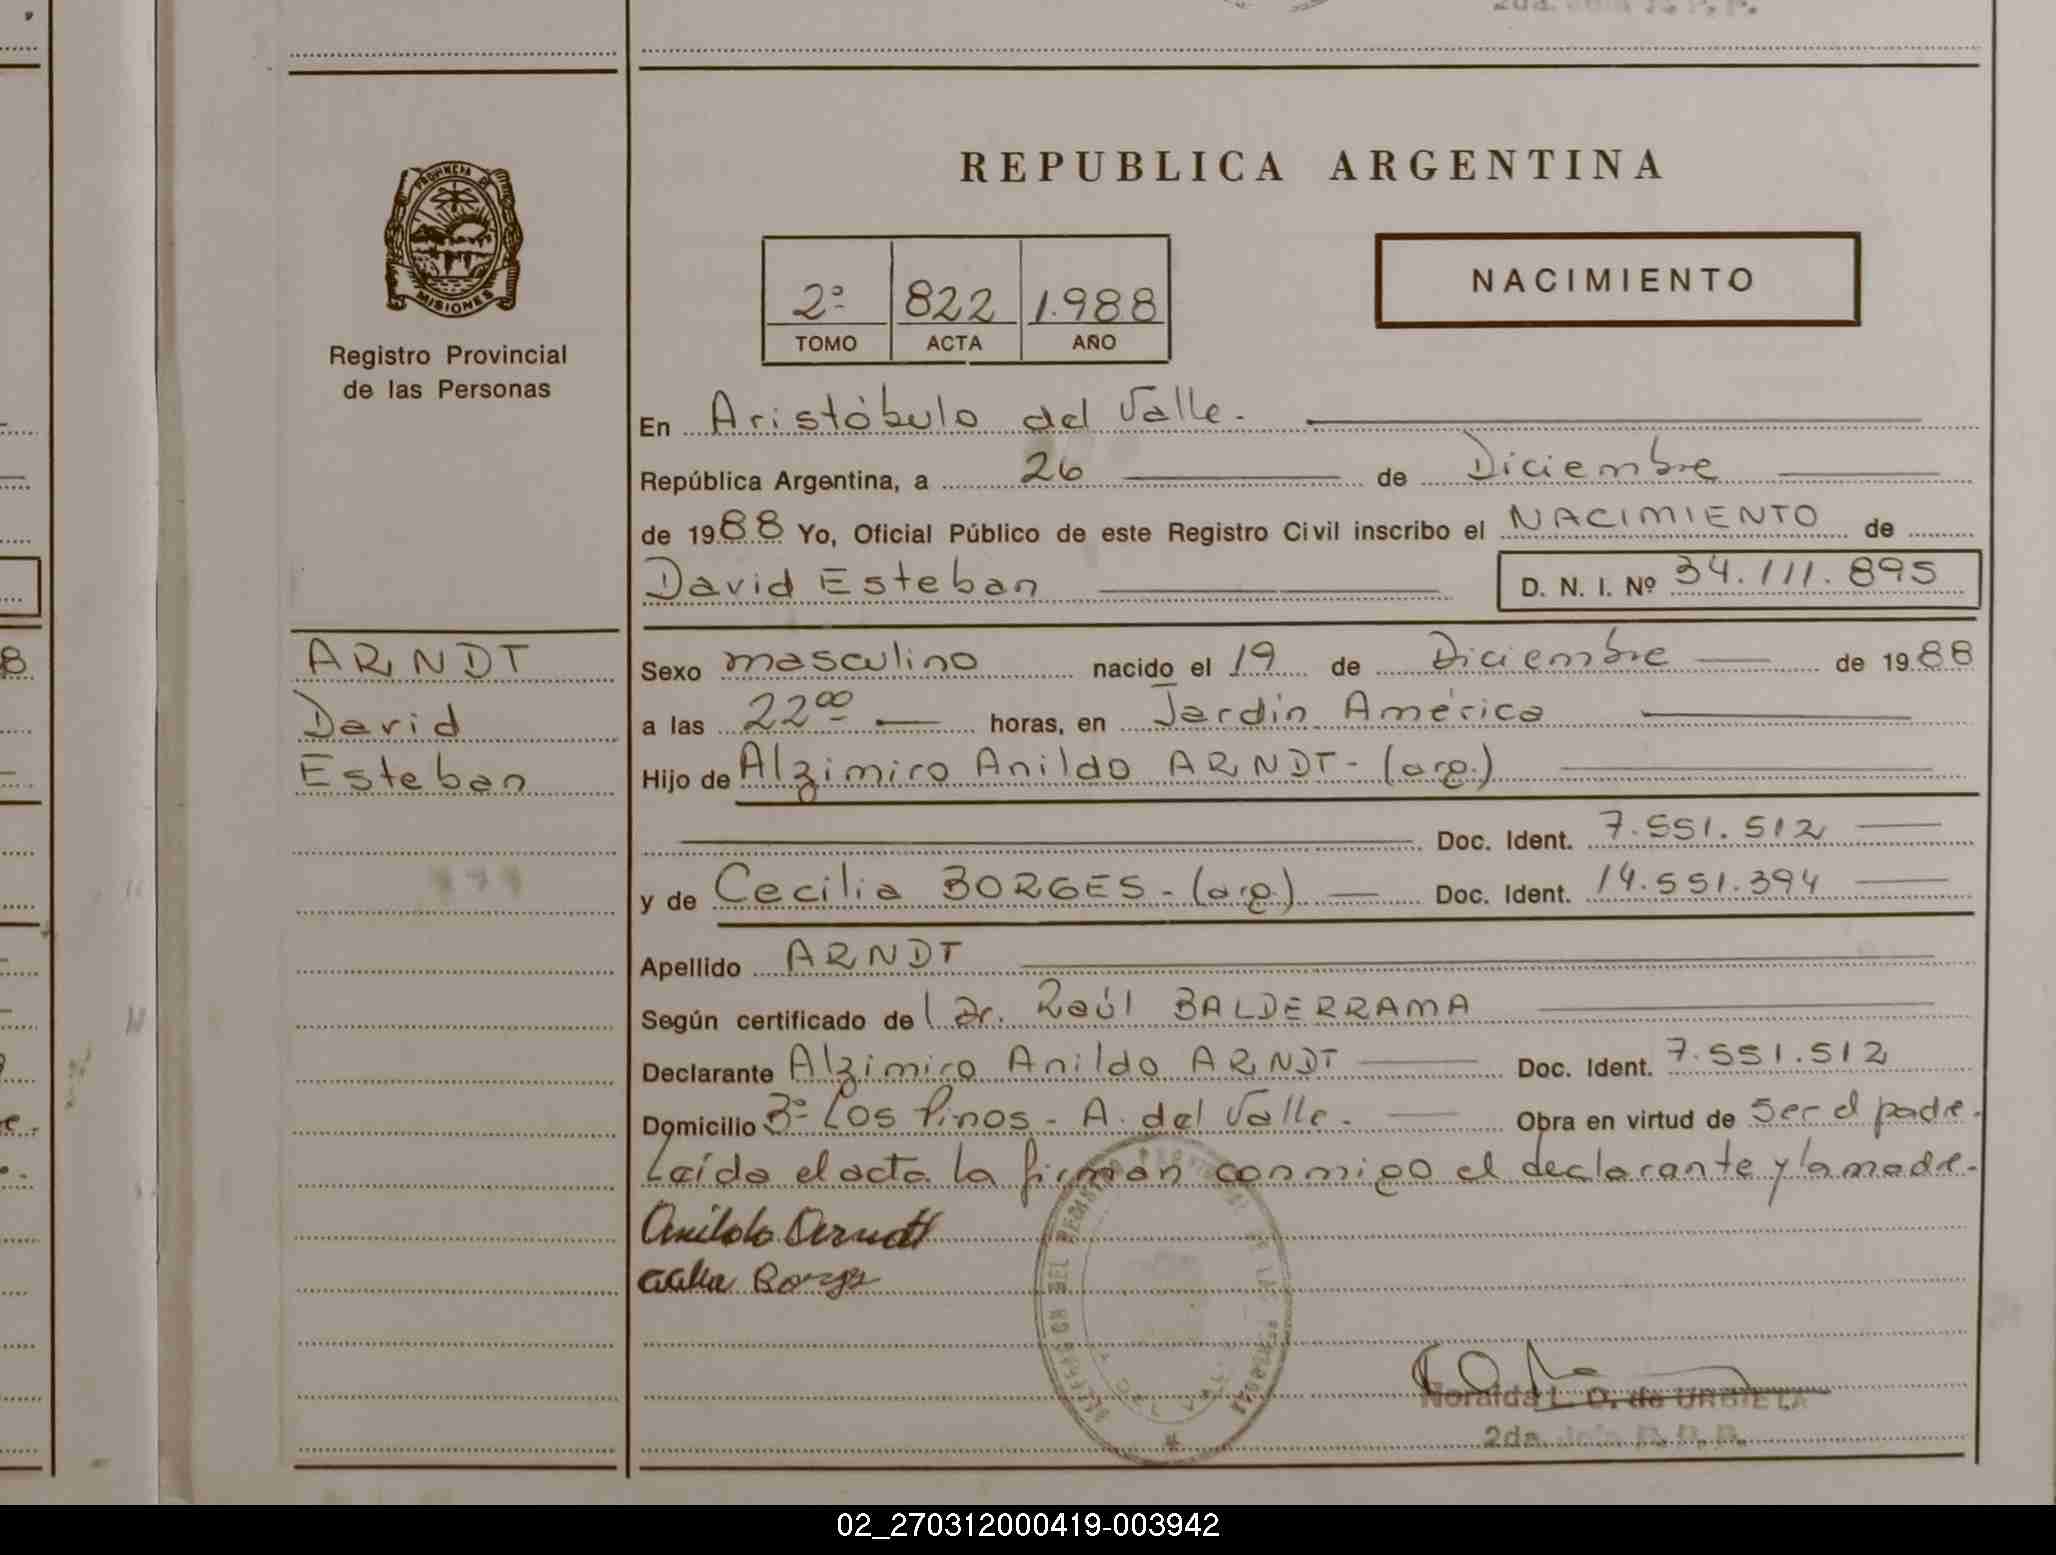 2da. Jefe R. P. P.
PROVINCIA DE
MISIONES
Registro Provincial
de las Personas
REPUBLICA ARGENTINA
2º 822 1.988
TOMO ACTA AÑO
NACIMIENTO
En Aristóbulo del Valle.
República Argentina, a 26 de Diciembre
de 1988 Yo, Oficial Público de este Registro Civil inscribo el NACIMIENTO de
David Esteban D. N. I. Nº 34.111.895
ARNDT
David
Esteban
Sexo masculino nacido el 19 de Diciembre de 1988
a las 22⁰⁰ horas, en Jardín América
Hijo de Alzimiro Anildo ARNDT - (arg.)
Doc. Ident. 7.551.512
y de Cecilia BORGES - (arg.) Doc. Ident. 14.551.394
Apellido ARNDT
Según certificado del Dr. Raúl BALDERRAMA
Declarante Alzimiro Anildo ARNDT Doc. Ident. 7.551.512
Domicilio 3º Los Pinos - A. del Valle. Obra en virtud de ser el padre.
Leída el acta la firman conmigo el declarante y la madre.
Anildo Arndt
Borges
DELEGACION DEL REGISTRO PROVINCIAL DE LAS PERSONAS
Noralda L. O. de URBIETA
2da. Jefe R. P. P.
02_270312000419-003942